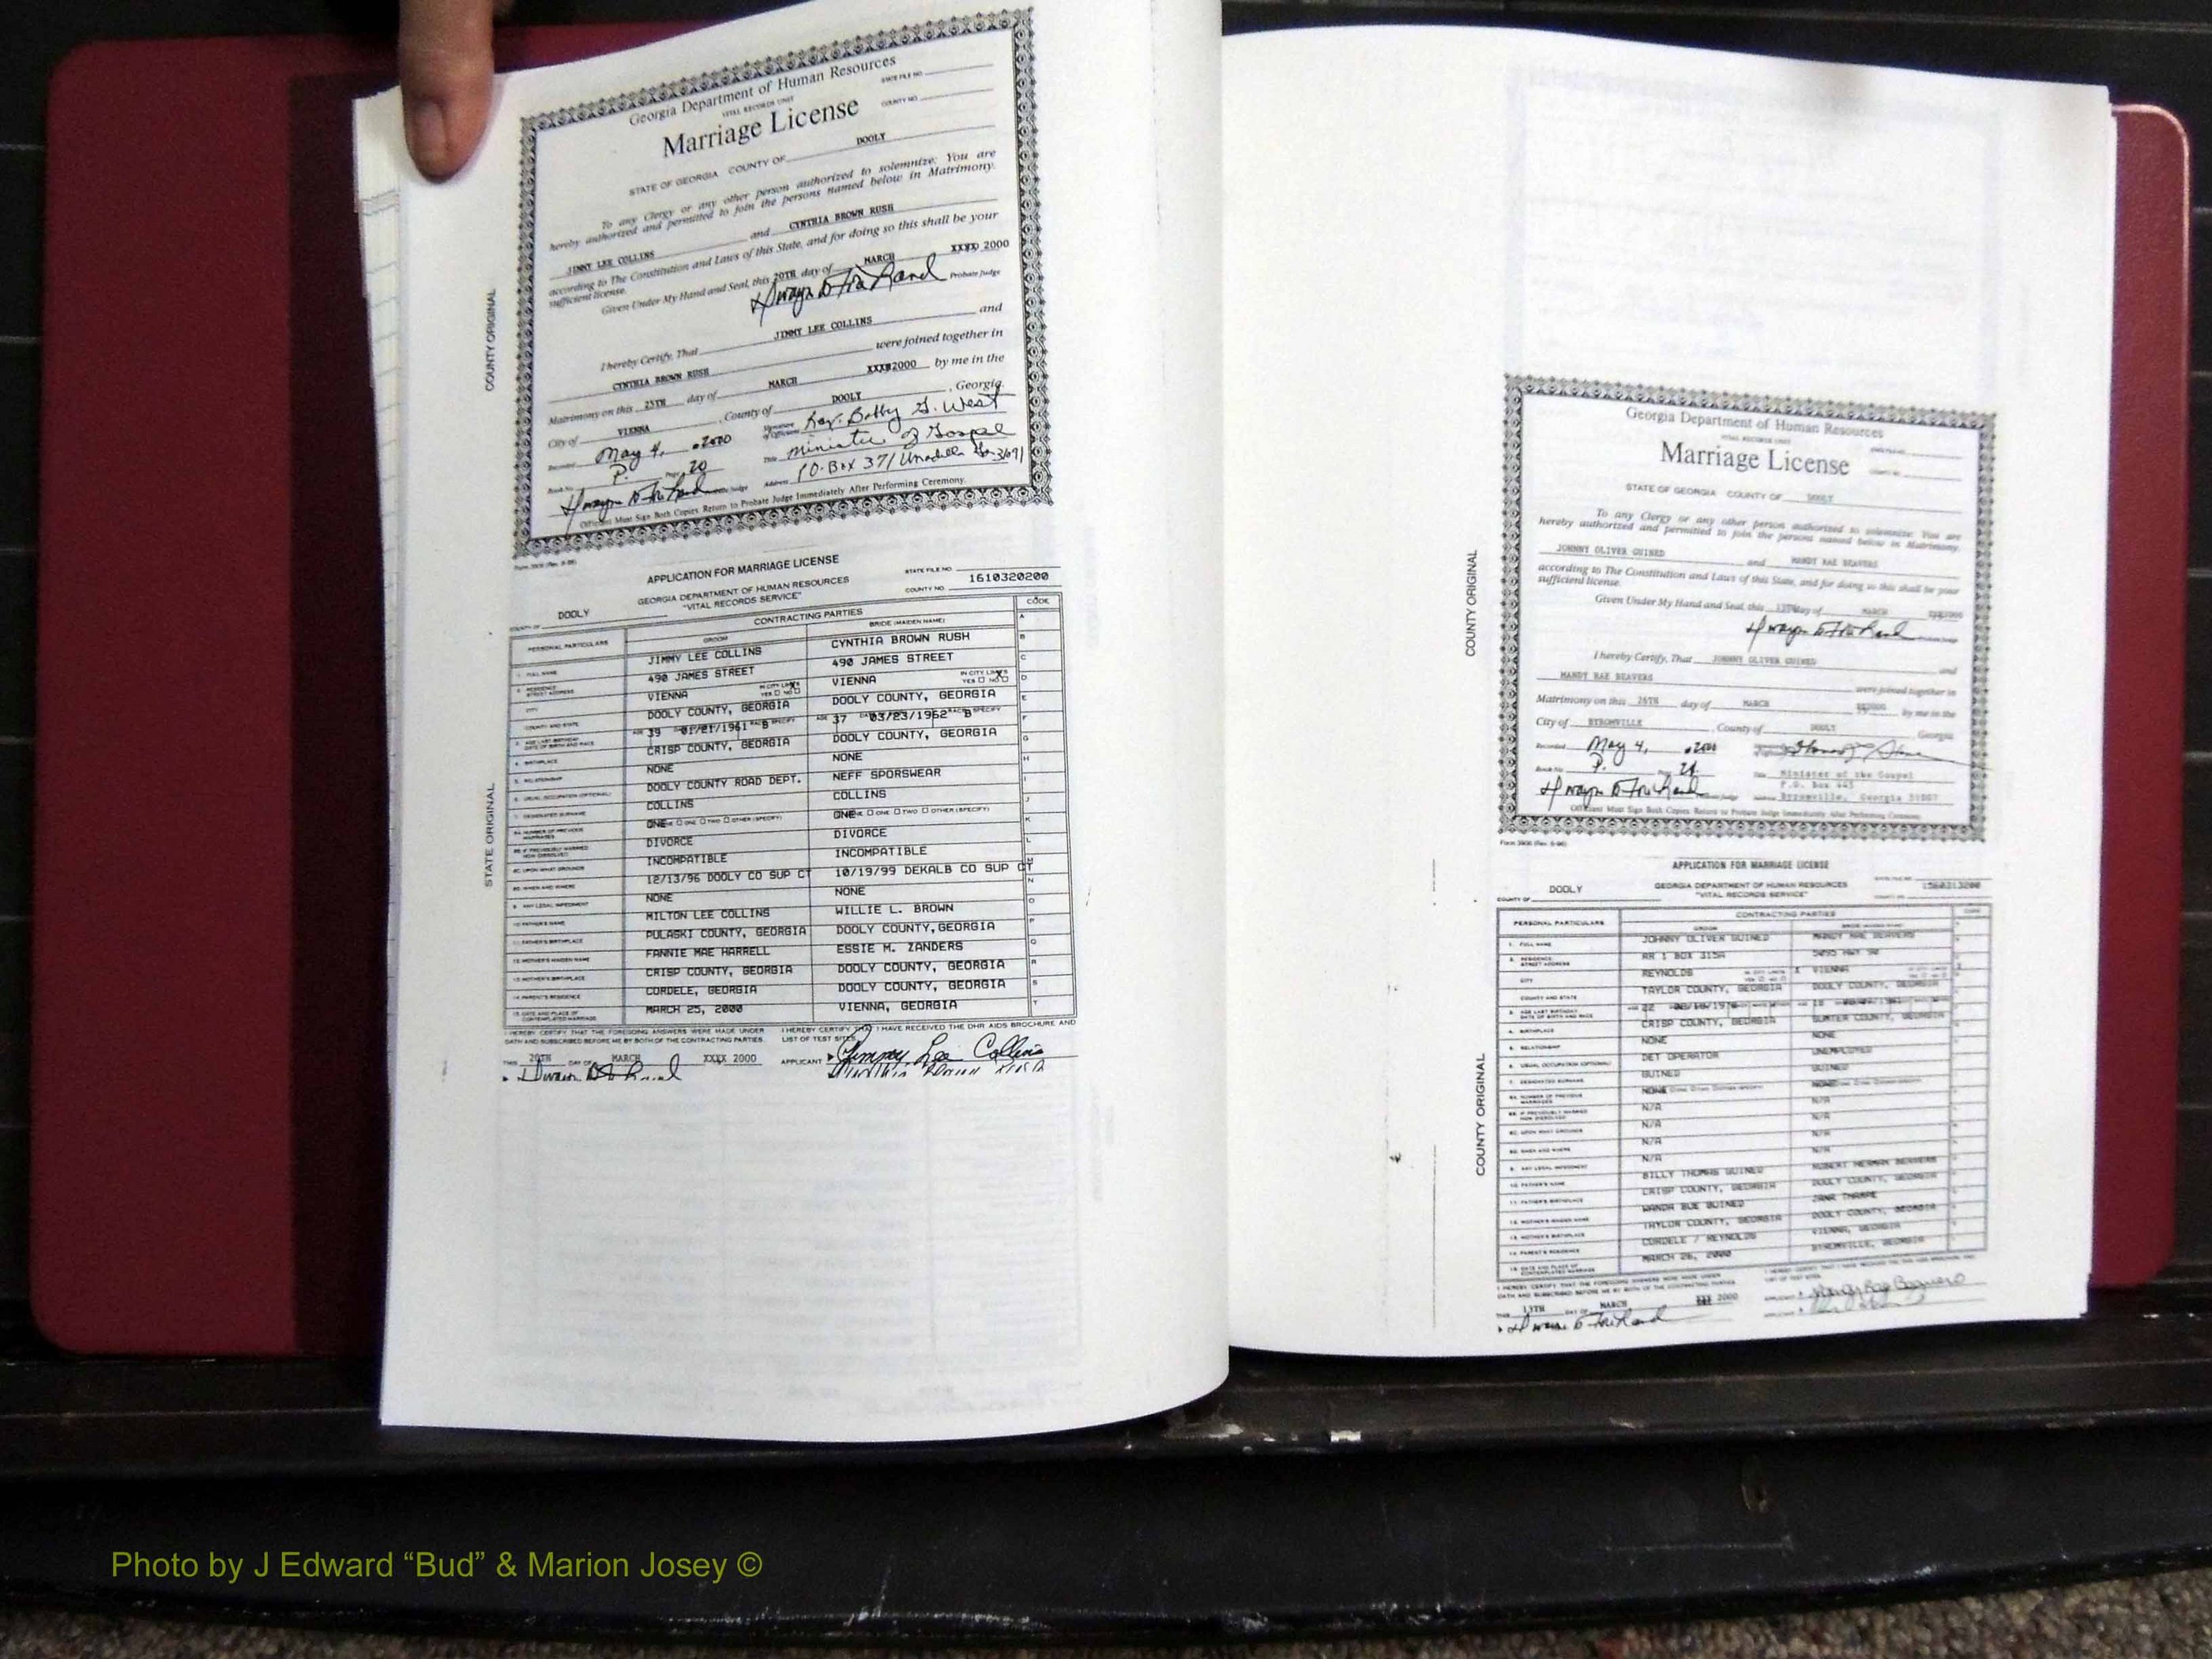 Georgia Department of Human Resources
VITAL RECORDS UNIT
STATE FILE NO.
Marriage License
COUNTY NO.
STATE OF GEORGIA COUNTY OF DOOLY
To any Clergy or any other person authorized to solemnize: You are
hereby authorized and permitted to join the persons named below in Matrimony.
JIMMY LEE COLLINS and CYNTHIA BROWN RUSH
according to The Constitution and Laws of this State, and for doing so this shall be your
sufficient license.
Given Under My Hand and Seal, this 20TH day of MARCH XXXX 2000
Probate Judge
I hereby Certify, That JIMMY LEE COLLINS and
CYNTHIA BROWN RUSH were joined together in
Matrimony on this 25TH day of MARCH XXXX 2000 by me in the
City of VIENNA, County of DOOLY, Georgia.
Recorded May 4, 2000 Signature of Officiant Rev. Bobby G. West
Book No. P. Page 20 Title Minister of Gospel
Address P.O. Box 371 Unadilla Ga 31091
Officiant Must Sign Both Copies. Return to Probate Judge Immediately After Performing Ceremony.
COUNTY ORIGINAL
APPLICATION FOR MARRIAGE LICENSE
GEORGIA DEPARTMENT OF HUMAN RESOURCES
"VITAL RECORDS SERVICE"
STATE FILE NO.
COUNTY NO. 1610320200
COUNTY OF DOOLY
STATE ORIGINAL
CONTRACTING PARTIES
CODE
PERSONAL PARTICULARS GROOM BRIDE (MAIDEN NAME)
1. FULL NAME JIMMY LEE COLLINS CYNTHIA BROWN RUSH
2. RESIDENCE STREET ADDRESS 490 JAMES STREET 490 JAMES STREET
CITY VIENNA IN CITY LIMITS YES NO VIENNA IN CITY LIMITS YES NO
COUNTY AND STATE DOOLY COUNTY, GEORGIA DOOLY COUNTY, GEORGIA
3. AGE LAST BIRTHDAY DATE OF BIRTH AND RACE AGE 39 01/21/1961 B AGE 37 03/23/1962 B
4. BIRTHPLACE CRISP COUNTY, GEORGIA DOOLY COUNTY, GEORGIA
5. RELATIONSHIP NONE NONE
6. USUAL OCCUPATION (OPTIONAL) DOOLY COUNTY ROAD DEPT. NEFF SPORSWEAR
7. DESIGNATED SURNAME COLLINS COLLINS
8A. NUMBER OF PREVIOUS MARRIAGES ONE ONE TWO OTHER (SPECIFY) ONE ONE TWO OTHER (SPECIFY)
8B. IF PREVIOUSLY MARRIED HOW DISSOLVED DIVORCE DIVORCE
8C. UPON WHAT GROUNDS INCOMPATIBLE INCOMPATIBLE
8D. WHEN AND WHERE 12/13/96 DOOLY CO SUP CT 10/19/99 DEKALB CO SUP CT
9. ANY LEGAL IMPEDIMENT NONE NONE
10. FATHER'S NAME MILTON LEE COLLINS WILLIE L. BROWN
11. FATHER'S BIRTHPLACE PULASKI COUNTY, GEORGIA DOOLY COUNTY,GEORGIA
12. MOTHER'S MAIDEN NAME FANNIE MAE HARRELL ESSIE M. ZANDERS
13. MOTHER'S BIRTHPLACE CRISP COUNTY, GEORGIA DOOLY COUNTY, GEORGIA
14. PARENT'S RESIDENCE CORDELE, GEORGIA DOOLY COUNTY, GEORGIA
15. DATE AND PLACE OF CONTEMPLATED MARRIAGE MARCH 25, 2000 VIENNA, GEORGIA
I HEREBY CERTIFY THAT THE FOREGOING ANSWERS WERE MADE UNDER
OATH AND SUBSCRIBED BEFORE ME BY BOTH OF THE CONTRACTING PARTIES.
I HEREBY CERTIFY THAT I HAVE RECEIVED THE DHR AIDS BROCHURE AND
LIST OF TEST SITES.
THIS 20TH DAY OF MARCH XXXX 2000 APPLICANT Jimmy Lee Collins
Cynthia Brown Rush
Georgia Department of Human Resources
VITAL RECORDS UNIT
Marriage License
STATE OF GEORGIA COUNTY OF DOOLY
To any Clergy or any other person authorized to solemnize: You are
hereby authorized and permitted to join the persons named below in Matrimony.
JOHNNY OLIVER GUINED and MANDY RAE BEAVERS
according to The Constitution and Laws of this State, and for doing so this shall be your
sufficient license.
Given Under My Hand and Seal, this 13TH day of MARCH 2000
I hereby Certify, That JOHNNY OLIVER GUINED and
MANDY RAE BEAVERS were joined together in
Matrimony on this 26TH day of MARCH 2000 by me in the
City of BYROMVILLE, County of DOOLY Georgia
Recorded May 4, 2000
Book No. P. Page 21 Title Minister of the Gospel
P.O. Box 445
Address Byromville, Georgia 31007
Officiant Must Sign Both Copies. Return to Probate Judge Immediately After Performing Ceremony.
COUNTY ORIGINAL
Form 3908 (Rev. 8-96)
APPLICATION FOR MARRIAGE LICENSE
GEORGIA DEPARTMENT OF HUMAN RESOURCES
"VITAL RECORDS SERVICE"
1560313200
COUNTY OF DOOLY
COUNTY ORIGINAL
CONTRACTING PARTIES
PERSONAL PARTICULARS GROOM BRIDE (MAIDEN NAME)
1. FULL NAME JOHNNY OLIVER GUINED MANDY RAE BEAVERS
2. RESIDENCE STREET ADDRESS RR 1 BOX 315A 5095 HWY 90
CITY REYNOLDS X VIENNA
COUNTY AND STATE TAYLOR COUNTY, GEORGIA DOOLY COUNTY, GEORGIA
3. AGE LAST BIRTHDAY DATE OF BIRTH AND RACE 22 18
4. BIRTHPLACE CRISP COUNTY, GEORGIA SUMTER COUNTY, GEORGIA
5. RELATIONSHIP NONE NONE
6. USUAL OCCUPATION (OPTIONAL) DET OPERATOR UNEMPLOYED
7. DESIGNATED SURNAME GUINED GUINED
8A. NUMBER OF PREVIOUS MARRIAGES NONE NONE
8B. IF PREVIOUSLY MARRIED HOW DISSOLVED N/A N/A
8C. UPON WHAT GROUNDS N/A N/A
8D. WHEN AND WHERE N/A N/A
9. ANY LEGAL IMPEDIMENT N/A N/A
10. FATHER'S NAME BILLY THOMAS GUINED ROBERT HERMAN BEAVERS
11. FATHER'S BIRTHPLACE CRISP COUNTY, GEORGIA DOOLY COUNTY, GEORGIA
12. MOTHER'S MAIDEN NAME WANDA SUE JANA THARPE
13. MOTHER'S BIRTHPLACE TAYLOR COUNTY, GEORGIA DOOLY COUNTY, GEORGIA
14. PARENT'S RESIDENCE CORDELE / REYNOLDS VIENNA, GEORGIA
15. DATE AND PLACE OF CONTEMPLATED MARRIAGE MARCH 26, 2000 BYROMVILLE, GEORGIA
I HEREBY CERTIFY THAT THE FOREGOING ANSWERS WERE MADE UNDER
OATH AND SUBSCRIBED BEFORE ME BY BOTH OF THE CONTRACTING PARTIES
THIS 13TH DAY OF MARCH XXX 2000
Photo by J Edward “Bud” & Marion Josey ©